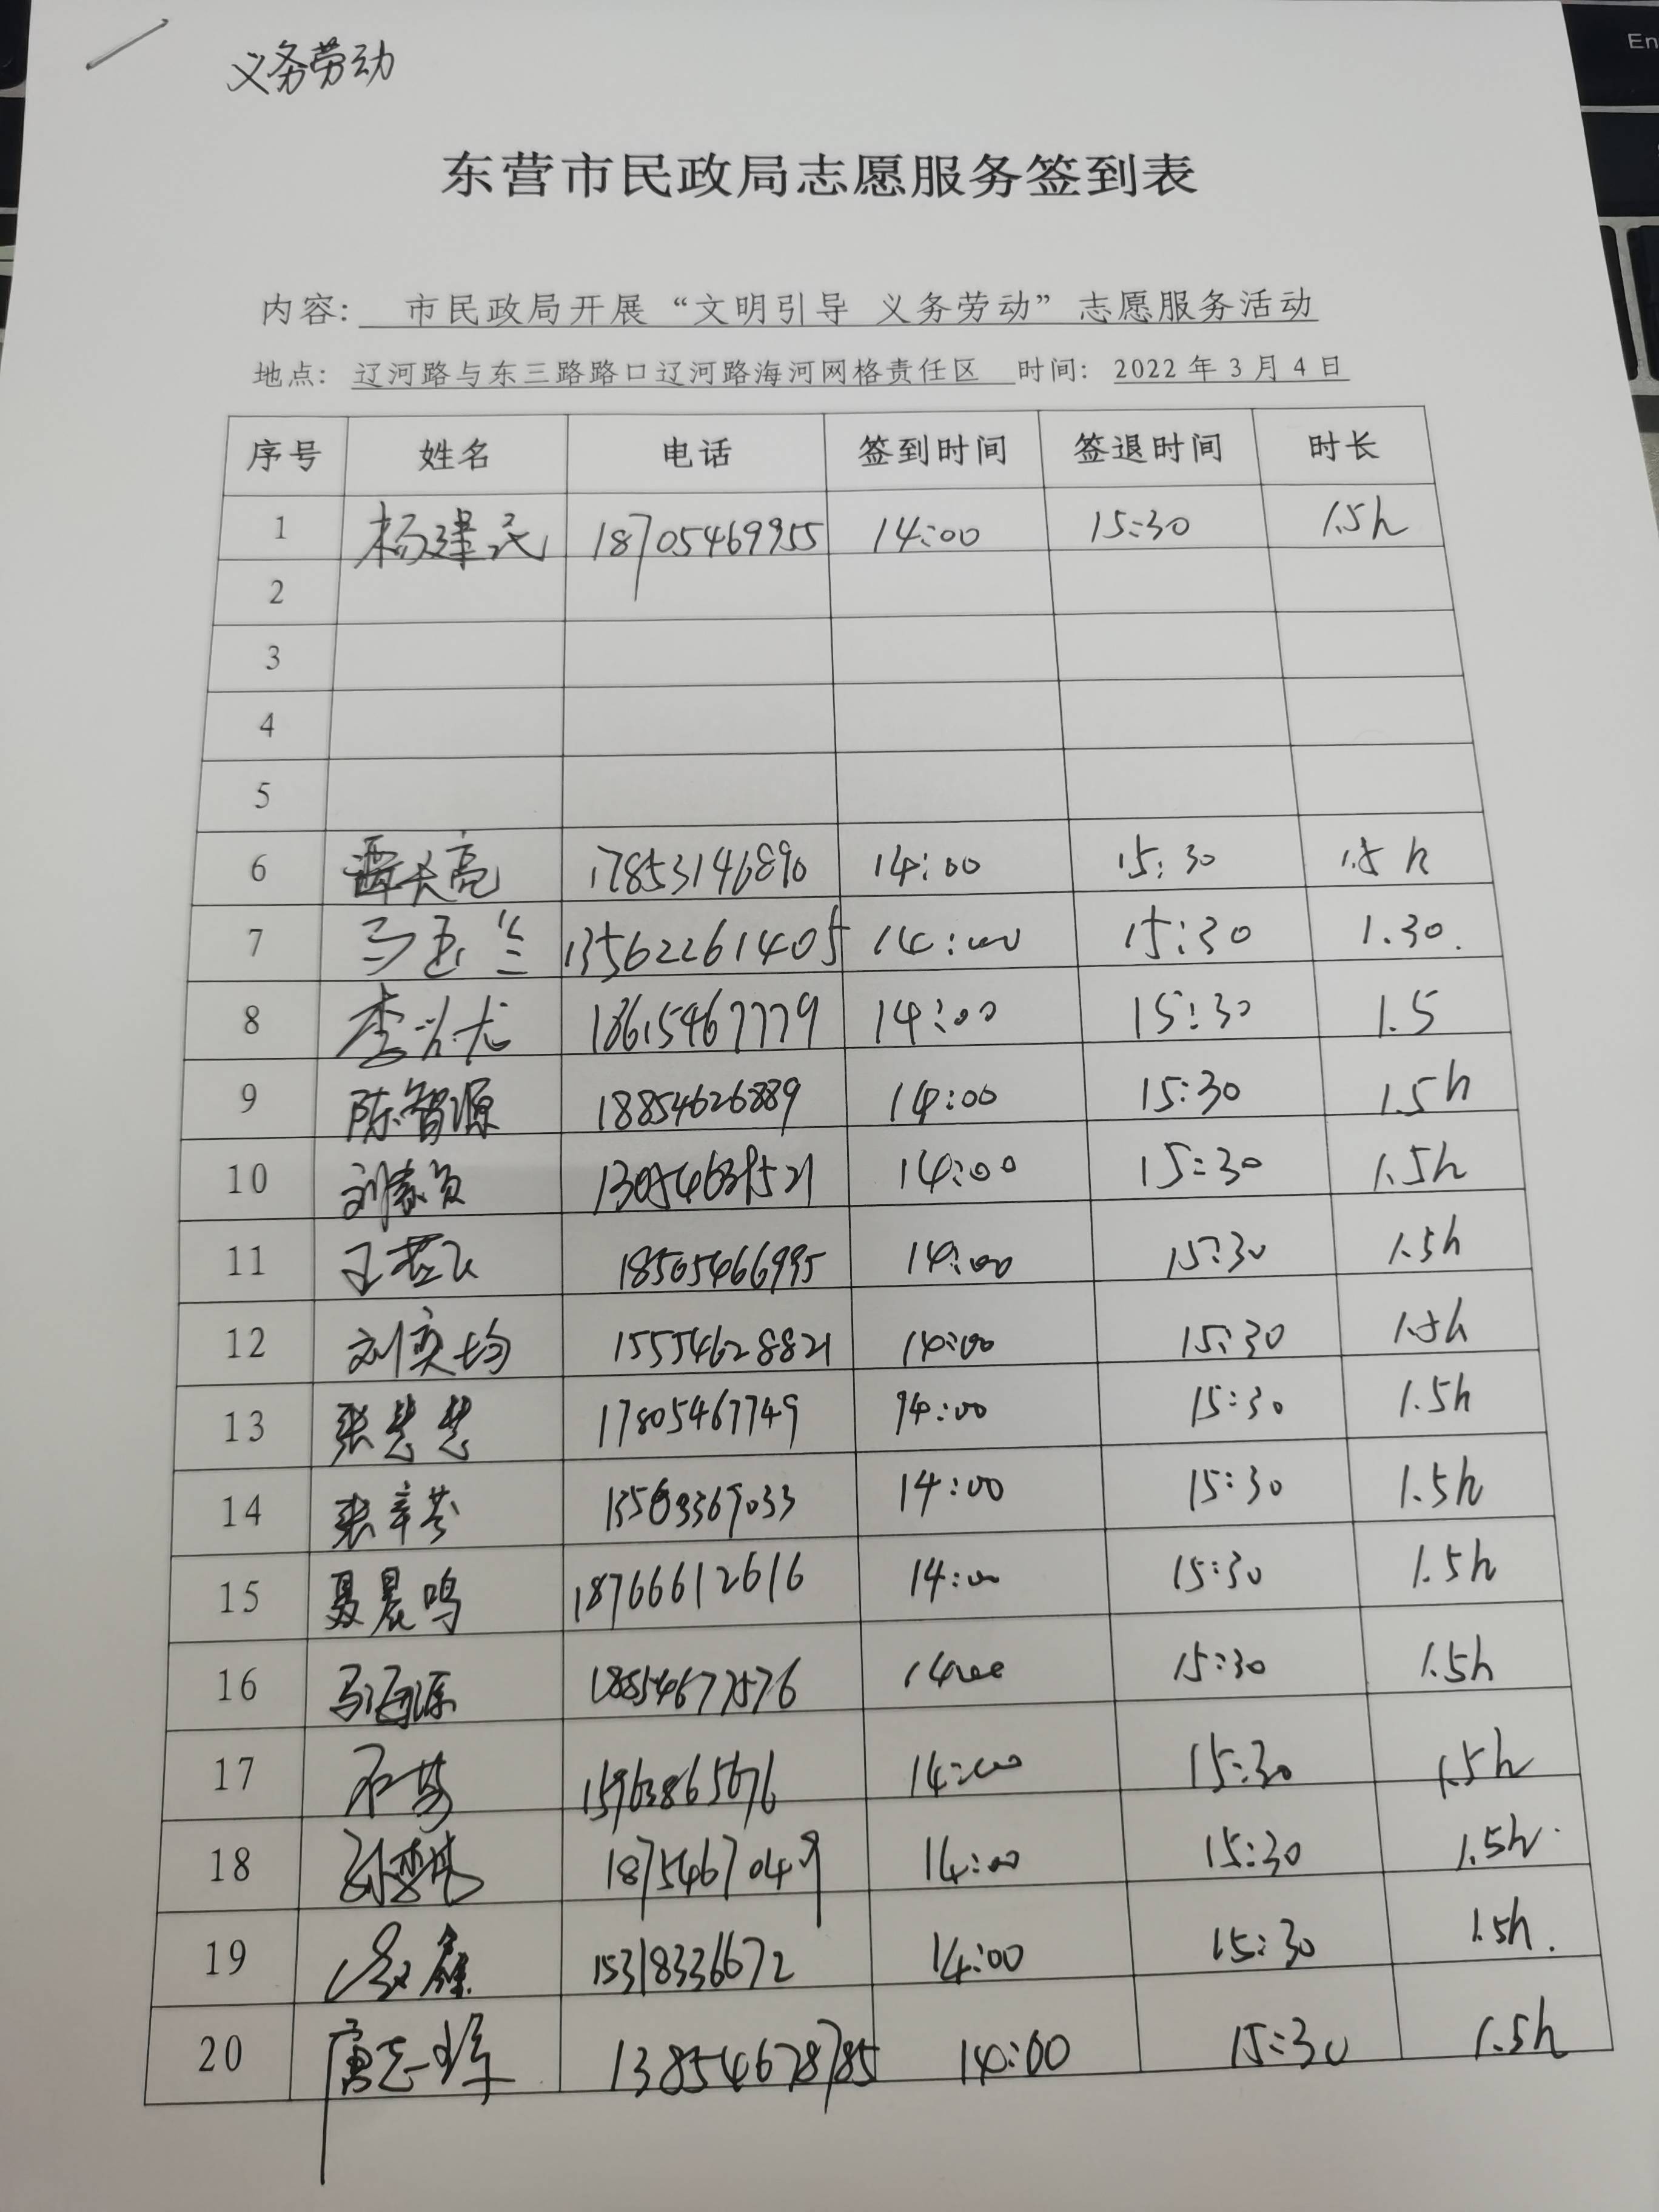 义务劳动
东营市民政局志愿服务签到表
内容: 市民政局开展“文明引导 义务劳动”志愿服务活动
地点: 辽河路与东三路路口辽河路海河网格责任区 时间: 2022年3月4日
序号 姓名 电话 签到时间 签退时间 时长
1 杨建民 18705469955 14:00 15:30 1.5h
2
3
4
5
6 17853146890 14:00 15:30 1.5h
7 马玉兰 13562261405 14:00 15:30 1.30.
8 18615467779 14:00 15:30 1.5
9 陈智源 18854626889 14:00 15:30 1.5h
10 14:00 15:30 1.5h
11 18565466995 14:00 15:30 1.5h
12 刘奕均 15554628821 14:00 15:30 1.5h
13 张慧慧 17805467749 14:00 15:30 1.5h
14 14:00 15:30 1.5h
15 聂晨鸣 18766612616 14:00 15:30 1.5h
16 马海源 18854677576 14:00 15:30 1.5h
17 14:00 15:30 1.5h
18 18754670449 14:00 15:30 1.5h
19 15318336672 14:00 15:30 1.5h.
20 13854678785 14:00 15:30 1.5h